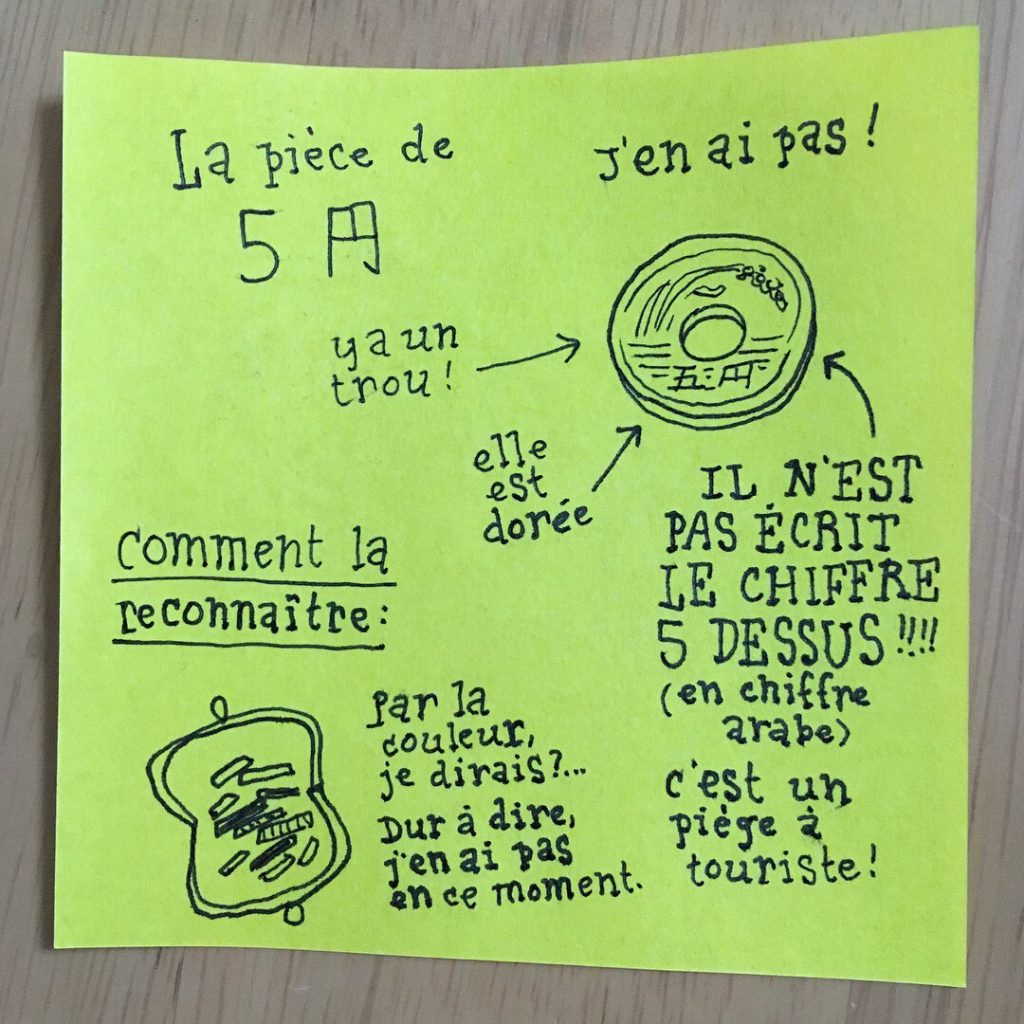 La pièce de
5 円
J'en ai pas!
y a un
trou!
五円
elle
est
dorée
IL N'EST
PAS ÉCRIT
LE CHIFFRE
5 DESSUS!!!!
(en chiffre
arabe)
c'est un
piège à
touriste!
comment la
reconnaître:
Par la
couleur,
je dirais?...
Dur à dire,
j'en ai pas
en ce moment.